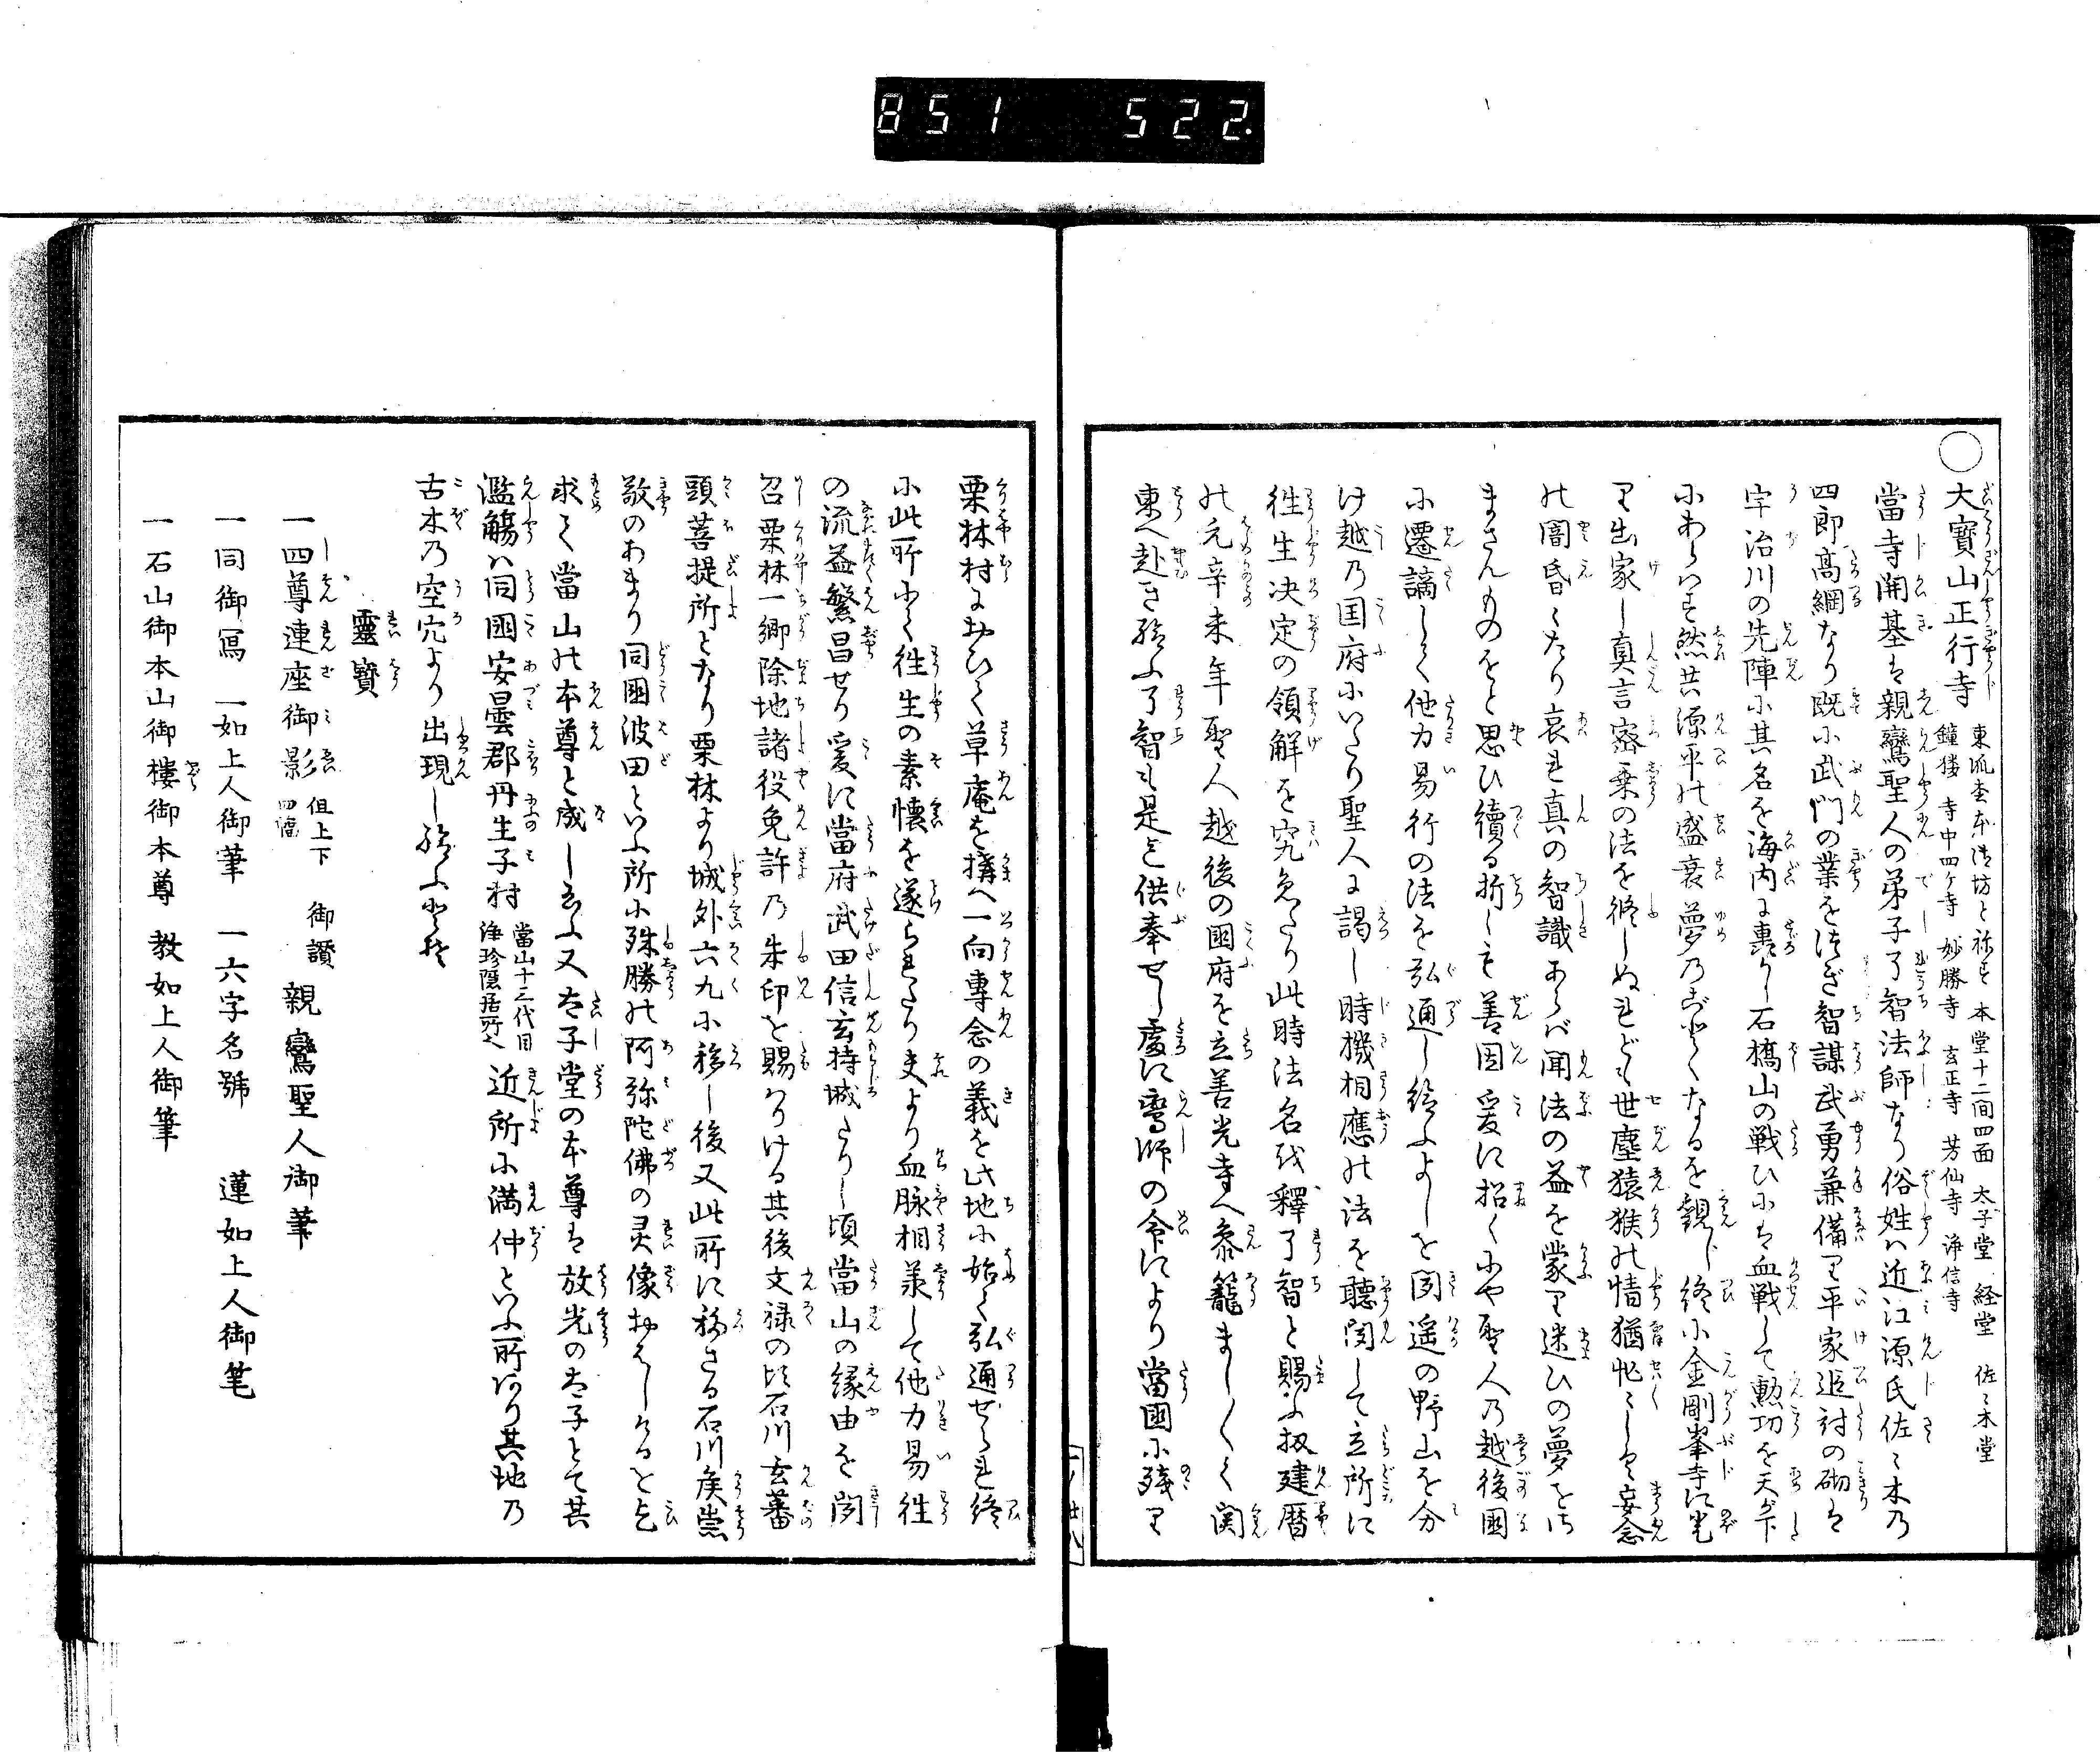 851 522.
○大寶山正行寺 東派本坊と称す 本堂十二間四面 太子堂 経堂 佐々木堂
鐘楼 寺中四ケ寺 妙勝寺 玄正寺 芳仙寺 浄信寺
當寺開基は親鸞聖人の弟子了智法師なり俗姓ハ近江源氏佐々木乃
四郎高綱なり既小武門の業を継ぎ智謀武勇兼備里平家追討の砌は
宇治川の先陣小其名を海内に轟かし石橋山の戦ひ小は血戦して勲功を天が下
小あらハす然共源平能盛衰夢乃ごとくなるを観じ終小金剛峯寺に登
里出家し真言密乗の法を修しぬれども世塵猿猴能情猶忙々しく妄念
能闇昏々たり哀れ真の智識あらバ聞法の益を蒙里迷ひの夢をさ
まさんものをと思ひ續る折しも善因爰に招くにや聖人乃越後國
小遷謫しく他力易行の法を弘通し給ふよしを聞遥の野山を分
け越乃国府小いたり聖人に謁し時機相應能法を聴聞して立所に
往生决定の領解を究免たり此時法名越釋了智と賜ふ扨建暦
能元辛未年聖人越後の國府を立善光寺へ参籠ましく〳〵て関
東へ赴き給ふ了智も是を供奉せし處に鸞師の命により當國小殘里
栗林村におひて草庵を搆へ一向專念の義を此地小始て弘通せられ終
小此所小て往生の素懐を遂られたり夫より血脉相義して他力易往
の流益繁昌せり爰に當府武田信玄持城たりし頃當山の縁由を聞
召栗林一郷除地諸役免許乃朱印を賜ハりける其後文禄の比石川玄蕃
頭菩提所となり栗林より城外六九小移し後又此所に移さる石川矦崇
敬のあまり同國波田といふ所小殊勝能阿弥陀佛の灵像おはしけるを乞
求て當山能本尊と成し玉ふ又太子堂の本尊は放光の太子とて其
濫觴ハ同國安曇郡丹生子村 當山十三代目
浄珍隠居所也 近所小満仲といふ所あり其地乃
古木乃空穴より出現し給ふとぞ
靈寳
一四尊連座御影 但上下
四幅 御讃 親鸞聖人御筆
一同御寫 一如上人御筆 一六字名號 蓮如上人御笔
一石山御本山御樓御本尊 教如上人御筆